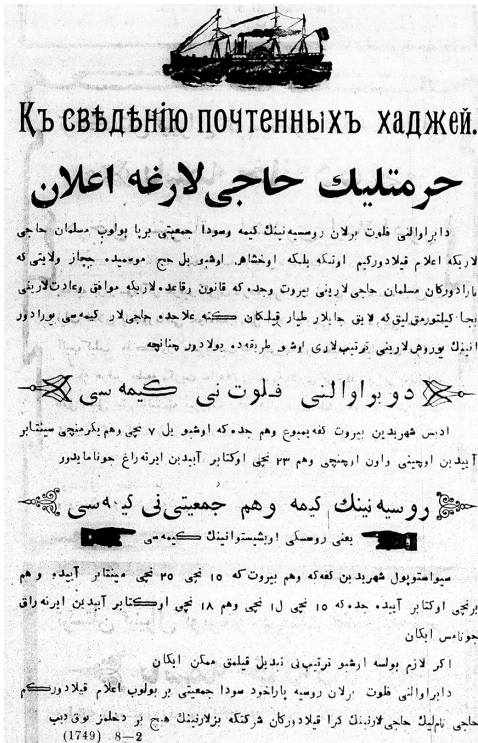 Къ свѣдѣнію почтенныхъ хаджей.
حرمتلیك حاجی لارغه اعلان
دابراوالنی فلوت برلان روسیه‌نینك كیمه وسودا جمعیتی بربا بولوب مسلمان حاجی
لاریكه اعلام قیلادورکیم اونكه بلیكه اوخشاهل اوشبو یل حج موسمیده حجاز ولایتی كه
بارادورکان مسلمان حاجی لارینی بیروت وجده كه قانون وقاعده لاریكه موافق وعادت لارینی
بجا كیلتورمق لیق كه لایق جابلار طیار قیلكان كنه علاحده حاجی لار كیمه سی یورادور
انینك یوروش لارینی ترتیب لاری اوشبو طریقه ده بولادور چنانچه
دوبراوالنی فلوت نی كیمه سی
ادیس شهریدین بیروت كفه یمبوع وهم جده كه اوشبو یل ۷ نچی وهم یكرمنچی سینتابر
آییدین اوچینی واون اوچنچی وهم ۲۳ نچی اوكتابر آییدین ایرته راغ جونامایدور
روسیه نینك كیمه وهم جمعیتی نی كیمه سی
یعنی روسسكی اوبشیستوانینك كیمه سی
سیواستوپول شهریدین كفه كه وهم بیروت كه ۱۵ نچی ۲۵ نچی سینتابر آییده وهم
برنچی اوكتابر آییده جده كه ۱۵ نچی وهم ۱۸ نچی اوكتابر آییدین ایرته راق
جونامس ایكان
اكر لازم بولسه اوشبو ترتیب نی تبدیل قیلمق ممكن ایكان
دابراوالنی فلوت برلان روسیه پاراخود سودا جمعیتی بر بولوب اعلام قیلادورکم
حاجی نام لیك حاجی لارنینك كرا قیلادورکان شركتكه بزلارنینك هیچ بر دخلمز یوق دیب
(1749) 8—2